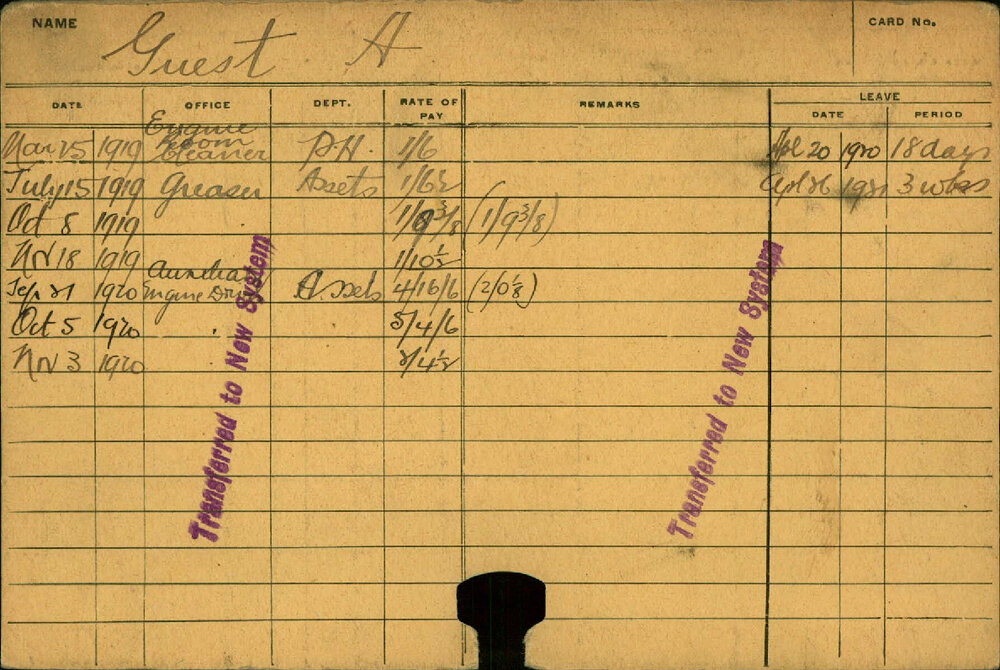 NAME Guest A CARD No.
DATE OFFICE DEPT. RATE OF PAY REMARKS LEAVE DATE PERIOD
Mar 25 1919 Engine Room Cleaner P.H. 1/6 Apl 20 1920 18 days
July 15 1919 Greaser Assets 1/6½ Apl 26 1921 3 wks
Oct 8 1919 (1/9⅜)
Nov 18 1919 1/10½
Sep 21 1920 Auxiliary Engine Dri Assets 4/16/6 (2/0⅛)
Oct 5 1920 5/4/6
Nov 3 1920 2/4½
Transferred to New System
Transferred to New System